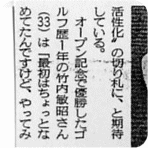 活性化〟の切り札に、と期待
している。
オープン記念で優勝したゴ
ルフ歴１年の竹内敏昭さん
(33)は「最初はちょっとな
めてたんですけど、やってみ